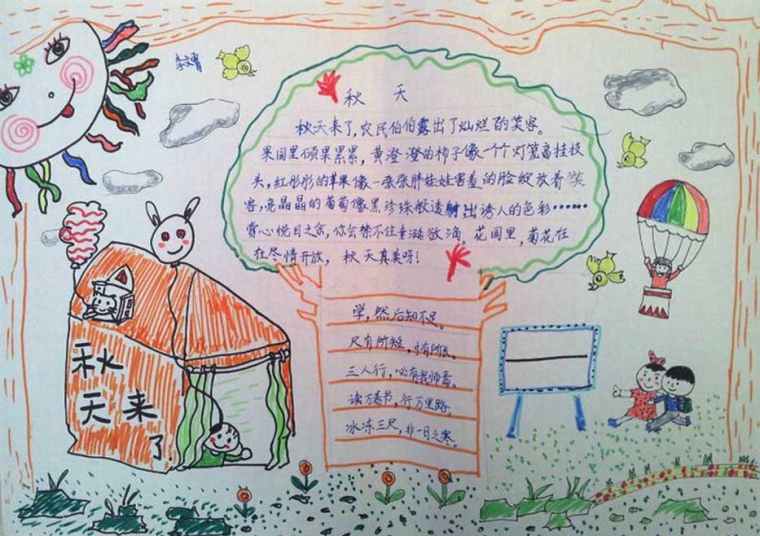 秋 天
秋天来了,农民伯伯露出了灿烂的笑容。
果园里硕果累累,黄澄澄的柿子像一个个灯笼高挂枝
头,红彤彤的苹果像一张张胖娃娃害羞的脸绽放着笑
容,亮晶晶的葡萄像黑珍珠般透射出诱人的色彩……
赏心悦目之余,你会禁不住垂涎欲滴。花园里,菊花在
在尽情开放,秋天真美呀!
学,然后知不足。
尺有所短,寸有所长。
三人行,必有我师焉。
读万卷书,行万里路。
冰冻三尺,非一日之寒。
秋
天来
了